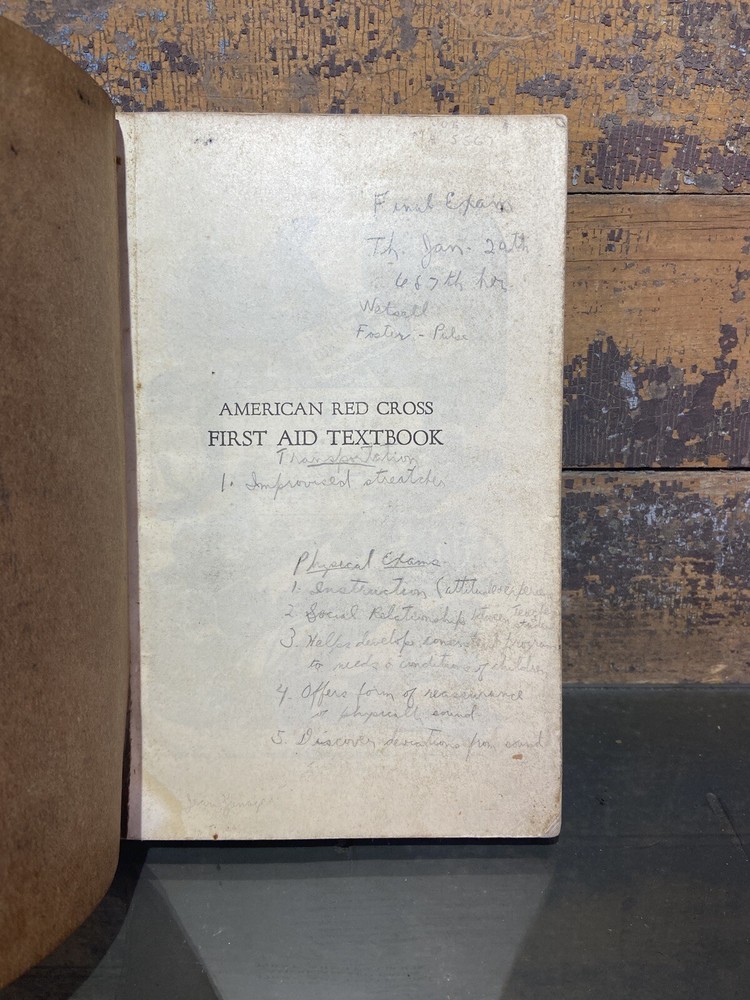 Final Exam
Th. Jan. 29th
6 & 7th hr.
Foster - Pulse
AMERICAN RED CROSS
FIRST AID TEXTBOOK
Transportation
1. Improvised stretcher
Physical Exams
1. Instruction (attitudes
2. Social Relationships between
3. Helps develop consistent program
to needs & conditions of children
4. Offers form of reassurance
physicall sound
5. Discover deviations from sound